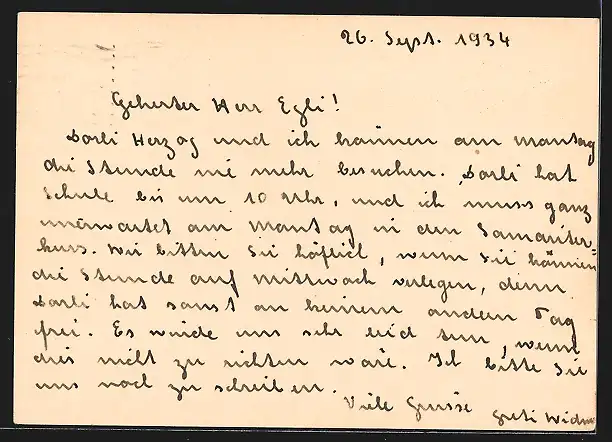 26. Sept. 1934
Geherter Herr Egli!
Dorli Herzog und ich können am Montag
die Stunde nie mehr besuchen. Dorli hat
Schule bis um 10 Uhr, und ich muss ganz
unerwartet am Montag in den Samariter=
kurs. Wir bitten Sie höflich, wenn Sie können
die Stunde auf Mittwoch verlegen, denn
Dorli hat sonst an keinem andern Tag
frei. Es würde uns sehr leid tun, wenn
dies nicht zu richten wäre. Ich bitte Sie
uns noch zu schreiben.
Viele Grüsse
Greti Widm